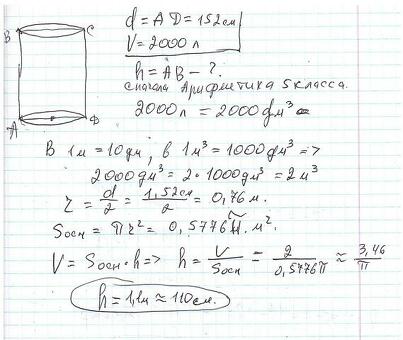 B C
A D
d = AD = 152 см
V = 2000 л
h = AB - ?
сначала Арифметика 5 класса.
2000 л = 2000 дм³ =
В 1 м = 10 дм, в 1 м³ = 1000 дм³ =>
2000 дм³ = 2·1000 дм³ = 2 м³
r = d/2 = 1,52 см/2 = 0,76 м.
Sосн = πr² = 0,5776π м².
V = Sосн·h => h = V/Sосн = 2/0,5776π ≈ 3,46/π
h = 1,1 м ≈ 110 см.